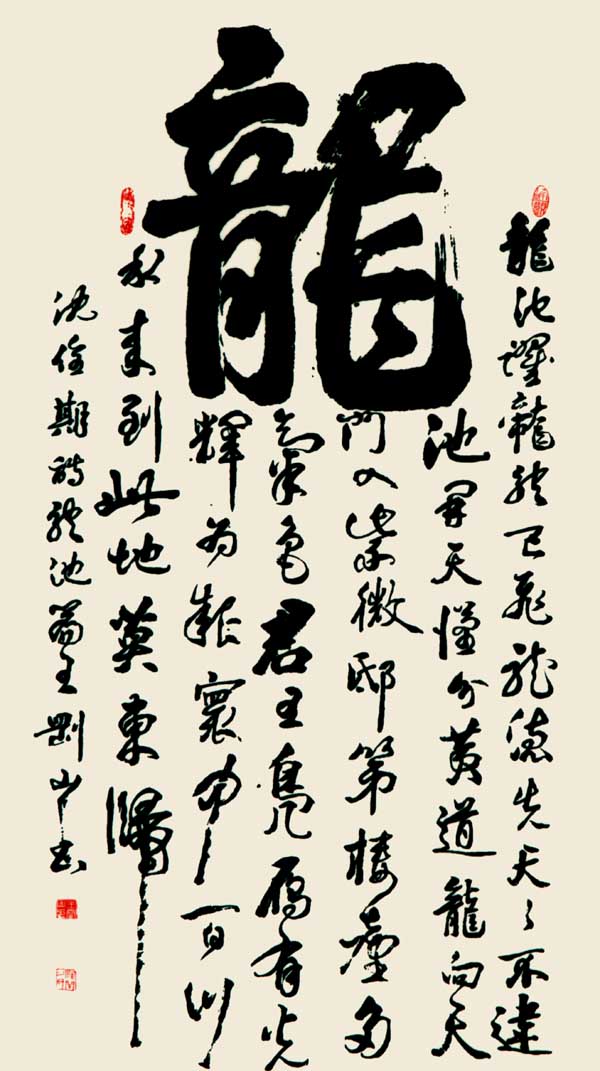 龍
龍池躍龍龍已飛龍德先天々不違
池開天漢分黃道龍向天
門入紫微邸第樓臺多
氣色君王鳧雁有光
輝為報寰中百川
水來到此地莫東歸
沈佺期詩龍池篇王剛山书